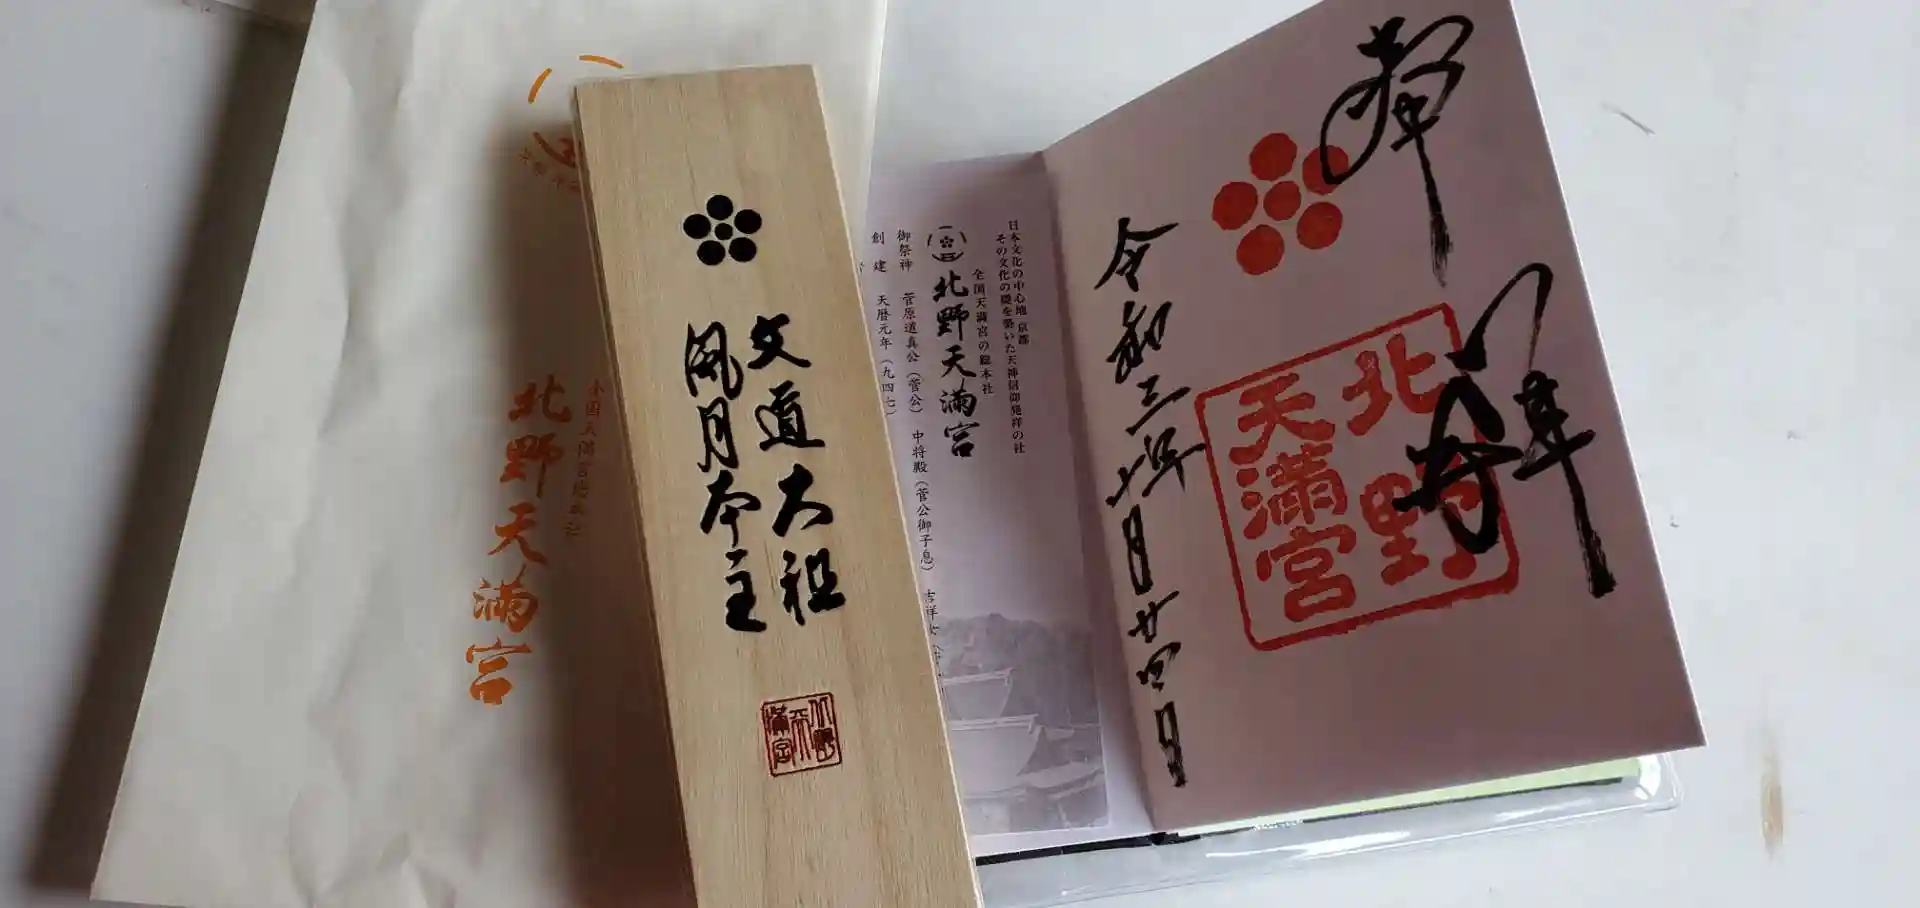 全国天満宮総本社
北野天満宮
文道大祖
風月本主
北野天満宮
日本文化の中心地 京都
その文化の礎を築いた天神信仰発祥の社
全国天満宮の総本社
北野天満宮
御祭神 菅原道真公（菅公） 中将殿（菅公御子息） 吉祥女
創建 天暦元年（九四七）
奉拝
北野天満宮
令和三年十月廿四日